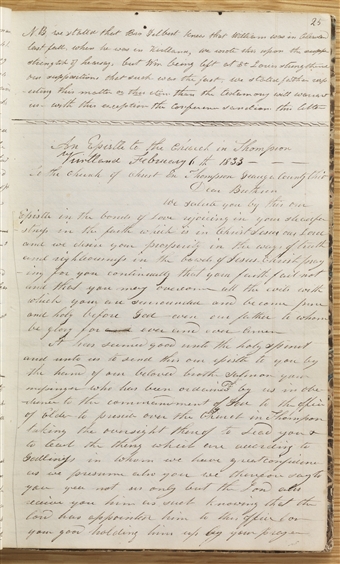 25
N.B we stated that Bro Vilbert knew that William was in
last fall when he was in we wrote this upon the
strength of hearsay but Wm being left at St Louis strengthened
our suppositions that such was the fact we stated farther resp
ecting this matter or this item than the testimony will warrent
us with this exception the conference sanction this letter
An Epistle to the Church in Thompson
Kirtland February 6th 1833
To the church of Christ in Thompson Geauga County Ohio
Dear Brethren
We salute you by this our
Epistle in the bonds of love rejoicing in your steadfast
ness in the faith which is in Christ Jesus our Lord
and we desire your prosperity in the ways of truth
and righteousness in the bowels of Jesus Christ pray
ing for you continually that your faith fail not
and that you may overcome all the evils with
which you are surrounded and become pure
and holy before God even our father to whom
be glory for ever and ever Amen
It has seemed good unto the holy spirit
and unto us to send this our epistle to you by
the hand of our beloved brother Salmon your
who has been ordained by us in obe
dience to the commandment of God to the office
of elder to preside over the Church in Thompson
taking the oversight thereof to lead you &
to teach the things which are according to
Godliness in whom we have great confidence
as we presume also you we therefore say to
you yea not us only but the Lord also
receive you him as such knowing that the
Lord has appointed him to this office for
your good holding him up by your prayers